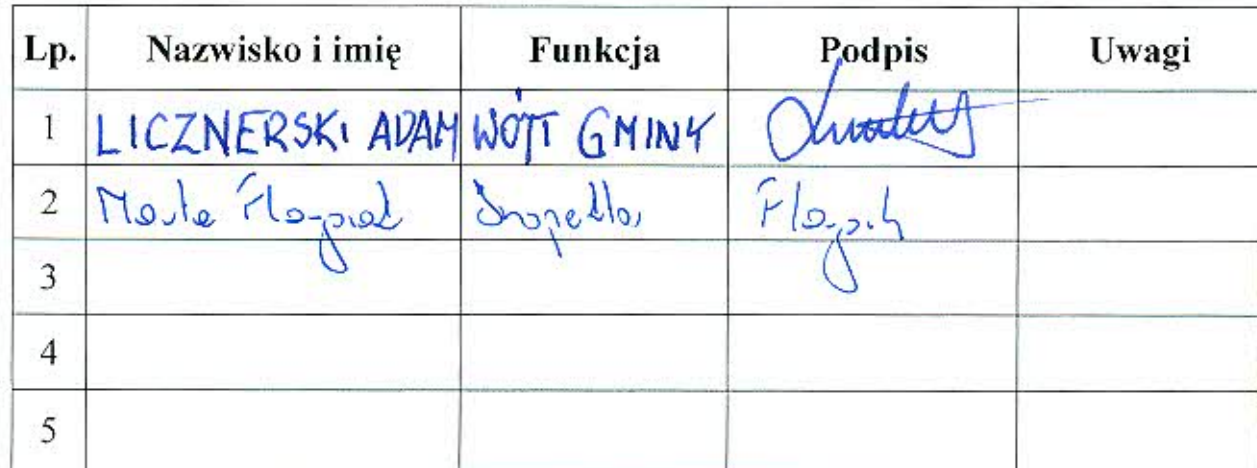 Lp. Nazwisko i imię Funkcja Podpis Uwagi
1 LICZNERSKI ADAM WÓJT GMINY
2 Marta Inspektor
3
4
5